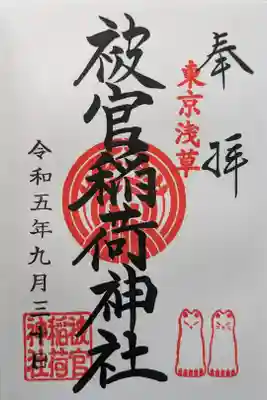 奉拝
東京浅草
被官稲荷神社
令和五年九月三十日
被官
稲荷
神社